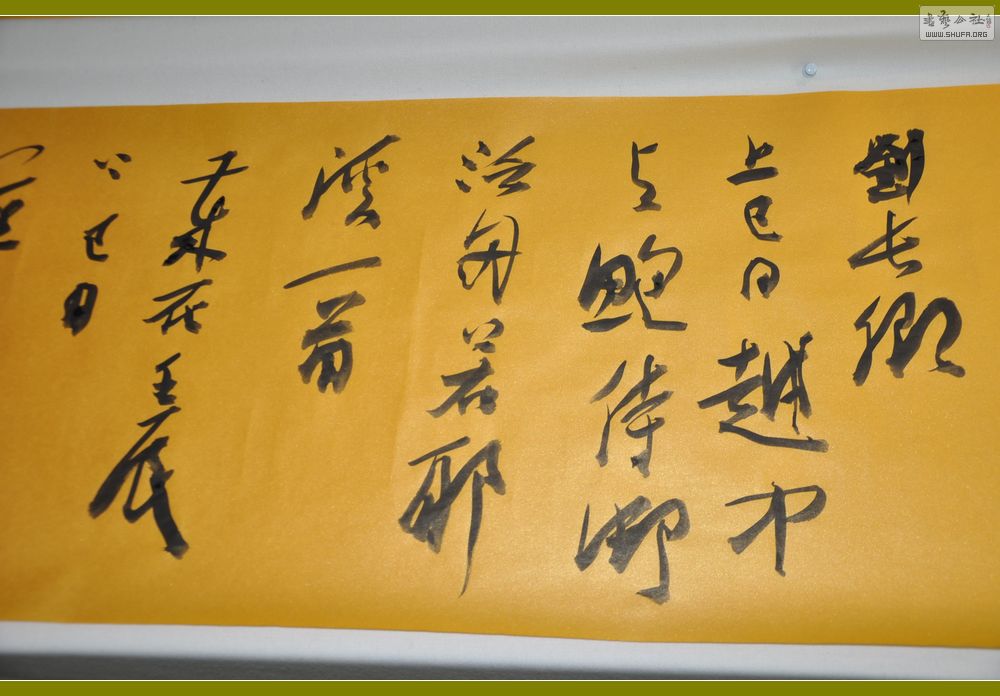 劉長卿
上巳日越中
与鮑侍御
泛舟若耶
溪一首
在壬辰
巳日
書藝公社
WWW.SHUFA.ORG